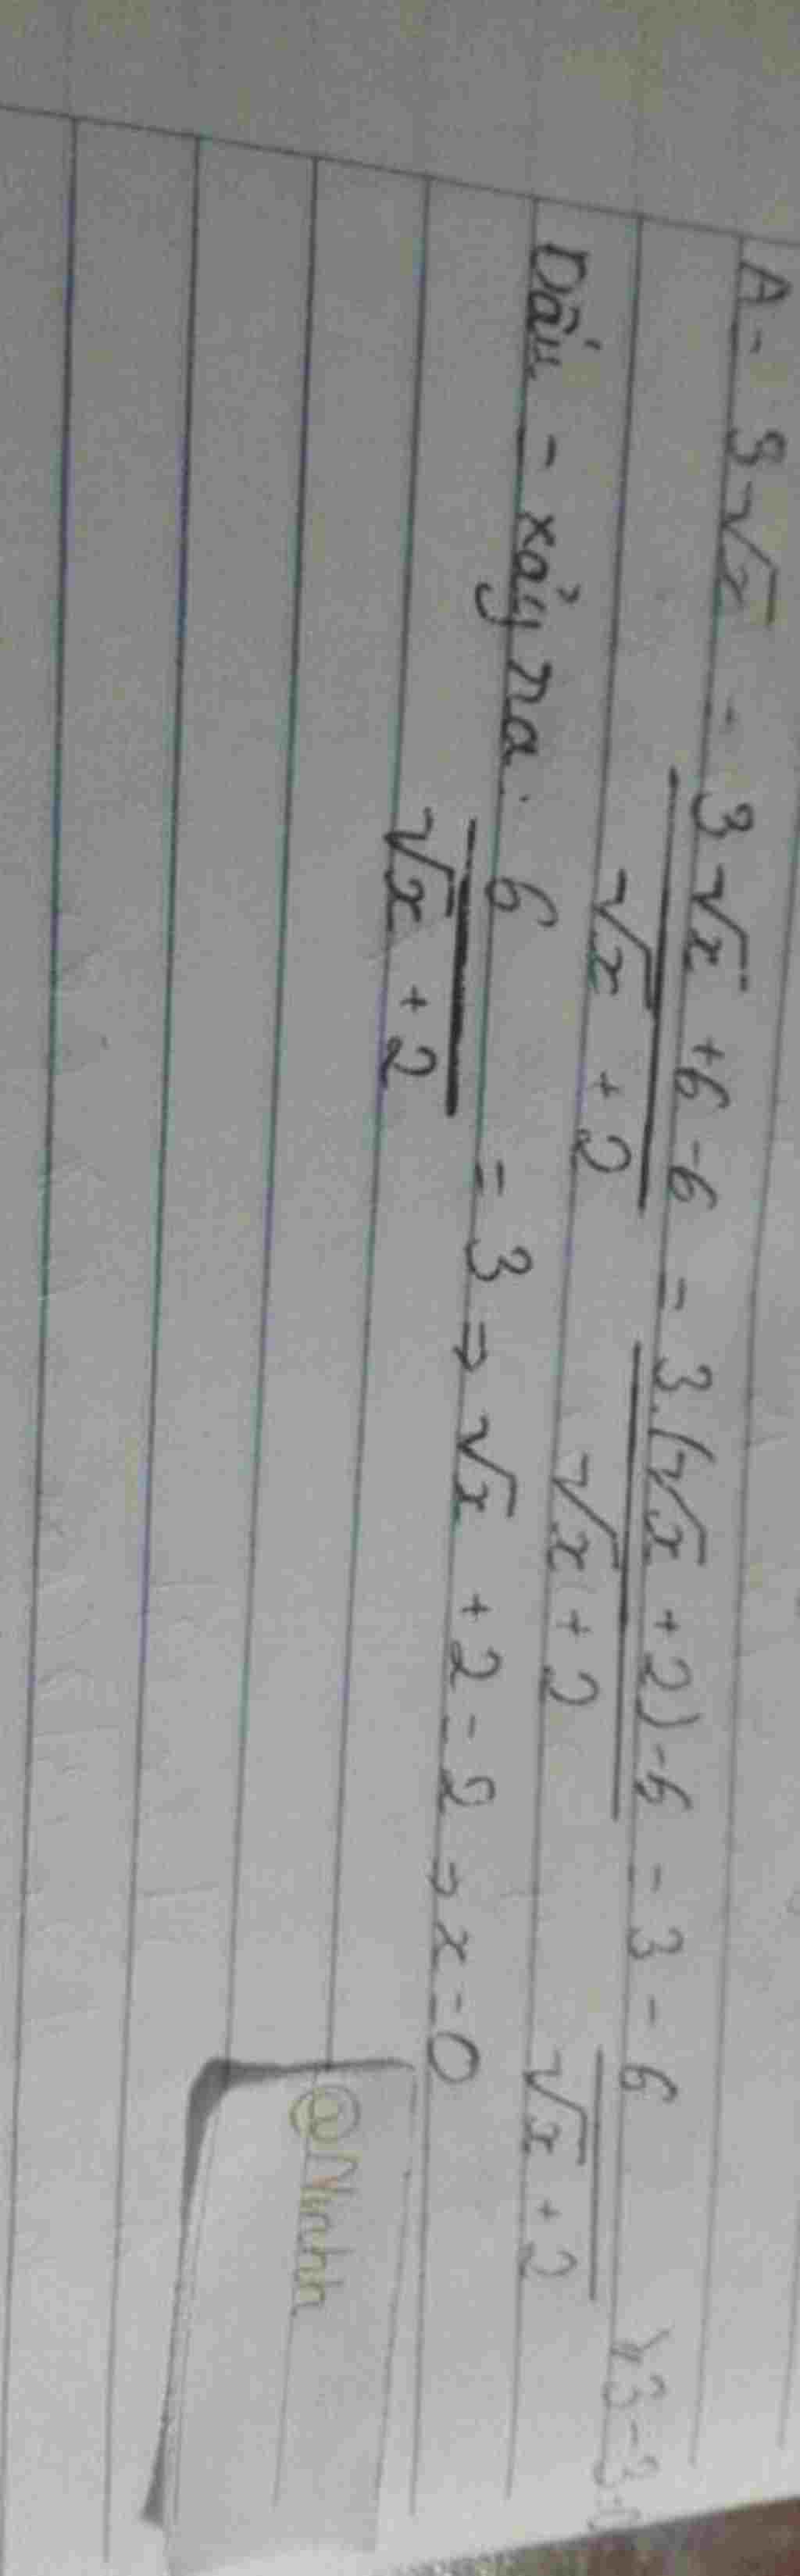 A = 3√x = (3√x + 6 - 6)/(√x + 2) = (3.(√x + 2) - 6)/(√x + 2) = 3 - 6/(√x + 2) ≥ 3 - 3 = 0
Dấu = xảy ra: 6/(√x + 2) = 3 ⇒ √x + 2 = 2 ⇒ x = 0
@Ninhh